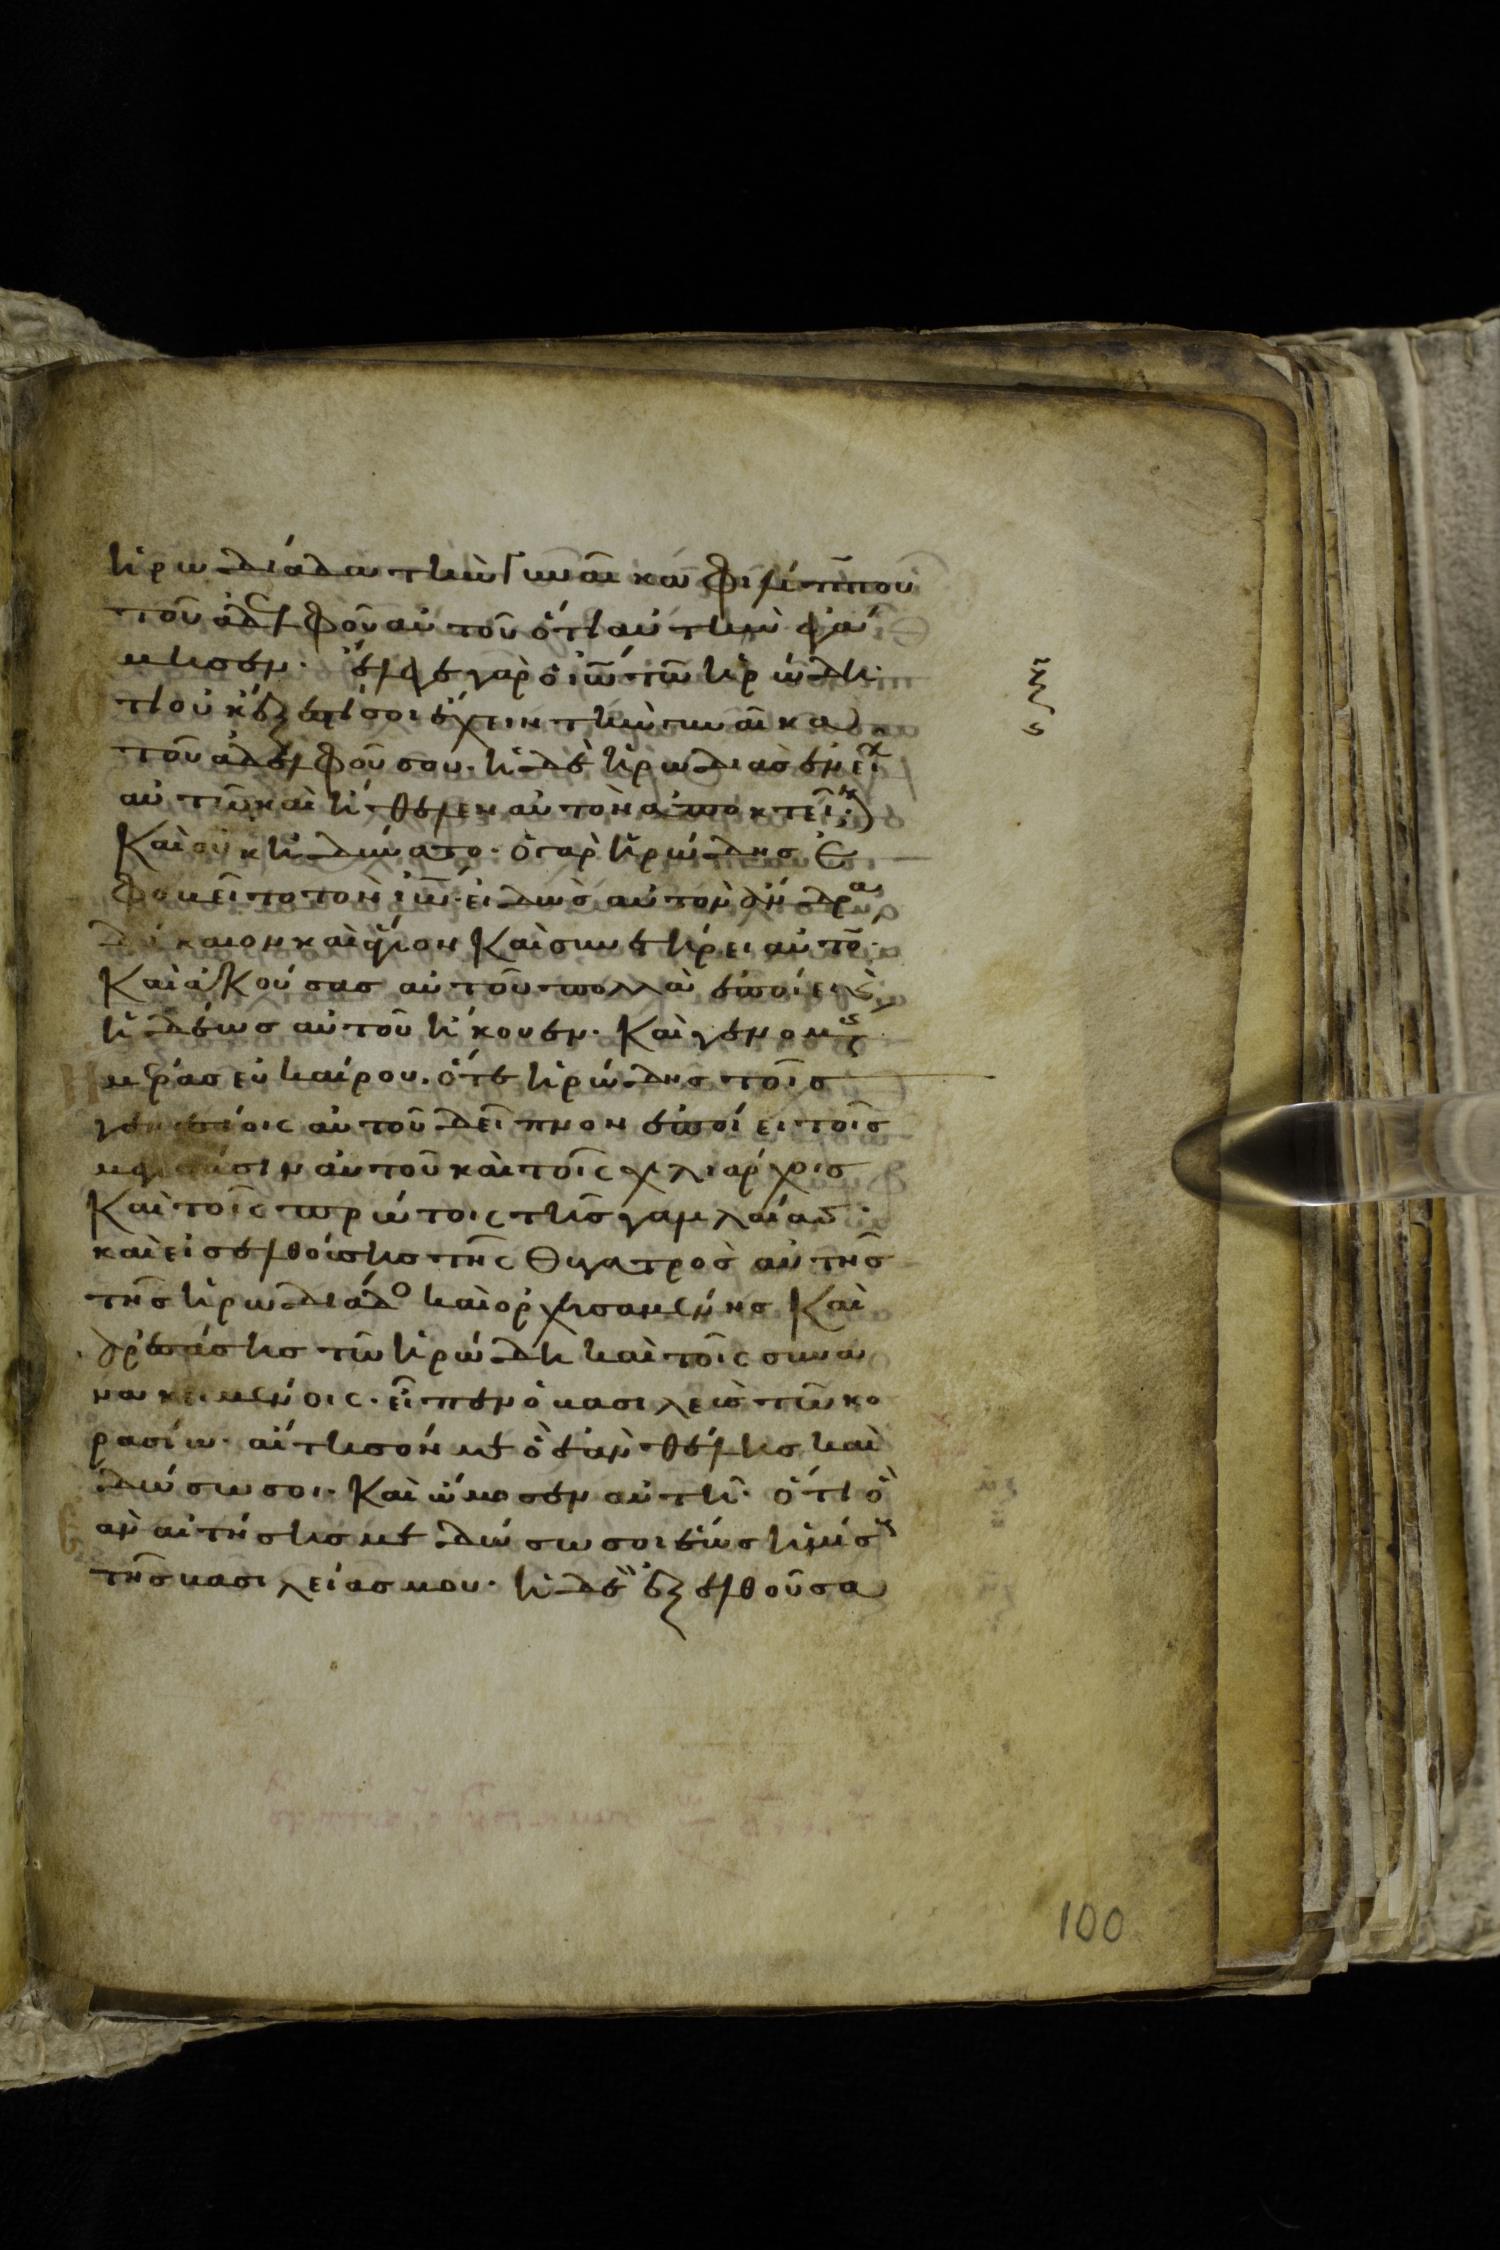 ἡρωδιάδα τὴν γυναῖκα φιλίππου
τοῦ ἀδελφοῦ αὐτοῦ ὅτι αὐτὴν ἐγά
μησεν· ἔλεγε γὰρ ὁ ἰω̅ τῶ ἡρώδη·
ὅτι οὐκ ἔξεστί σοι ἔχειν τὴν γυναῖκα
τοῦ ἀδελφοῦ σου· ἡ δὲ ἡρωδιὰς ἐνεῖχ
αὐτῶ καὶ ἤθελεν αὐτὸν ἀποκτεῖν
Καὶ οὐκ ἠδύνατο· ὁ γὰρ ἡρώδης ἐ
φοβεῖτο τὸν ἰω̅· εἰδὼς αὐτὸν ἄνδρα
δίκαιον καὶ ἅγιον Καὶ συνετήρει αὐτό·
Καὶ ἀκούσας αὐτοῦ πολλὰ ἐποίει καὶ
ἡδέως αὐτοῦ ἤκουεν· Καὶ γενομ
μέρας εὐκαίρου· ὅτε ἡρώδης τοῖς
γενεσίοις αὐτοῦ δεῖπνον ἐποίει τοῖς
μεγιστάσιν αὐτοῦ καὶ τοῖς χιλιάρχοις
Καὶ τοῖς πρώτοις τῆς γαλιλαίας·
καὶ εἰσελθούσης τῆς θυγατρὸς αὐτῆς
τῆς ἡρωδιάδο καὶ ὀρχησαμένης Καὶ
ἀρεσάσης τῶ ἡρώδη καὶ τοῖς συνα
νακειμένοις· εἶπεν ὁ βασιλεὺς τῶ κο
ρασίω· αἴτησόν με ὃ ἐὰν θέλης καὶ
δώσω σοι· Καὶ ὤμοσεν αὐτῆ· ὅτι ὃ
ἂν αἰτήσης με δώσω σοι ἕως ἡμίσ
τῆς βασιλείας μου· ἡ δὲ ἐξελθοῦσα
100